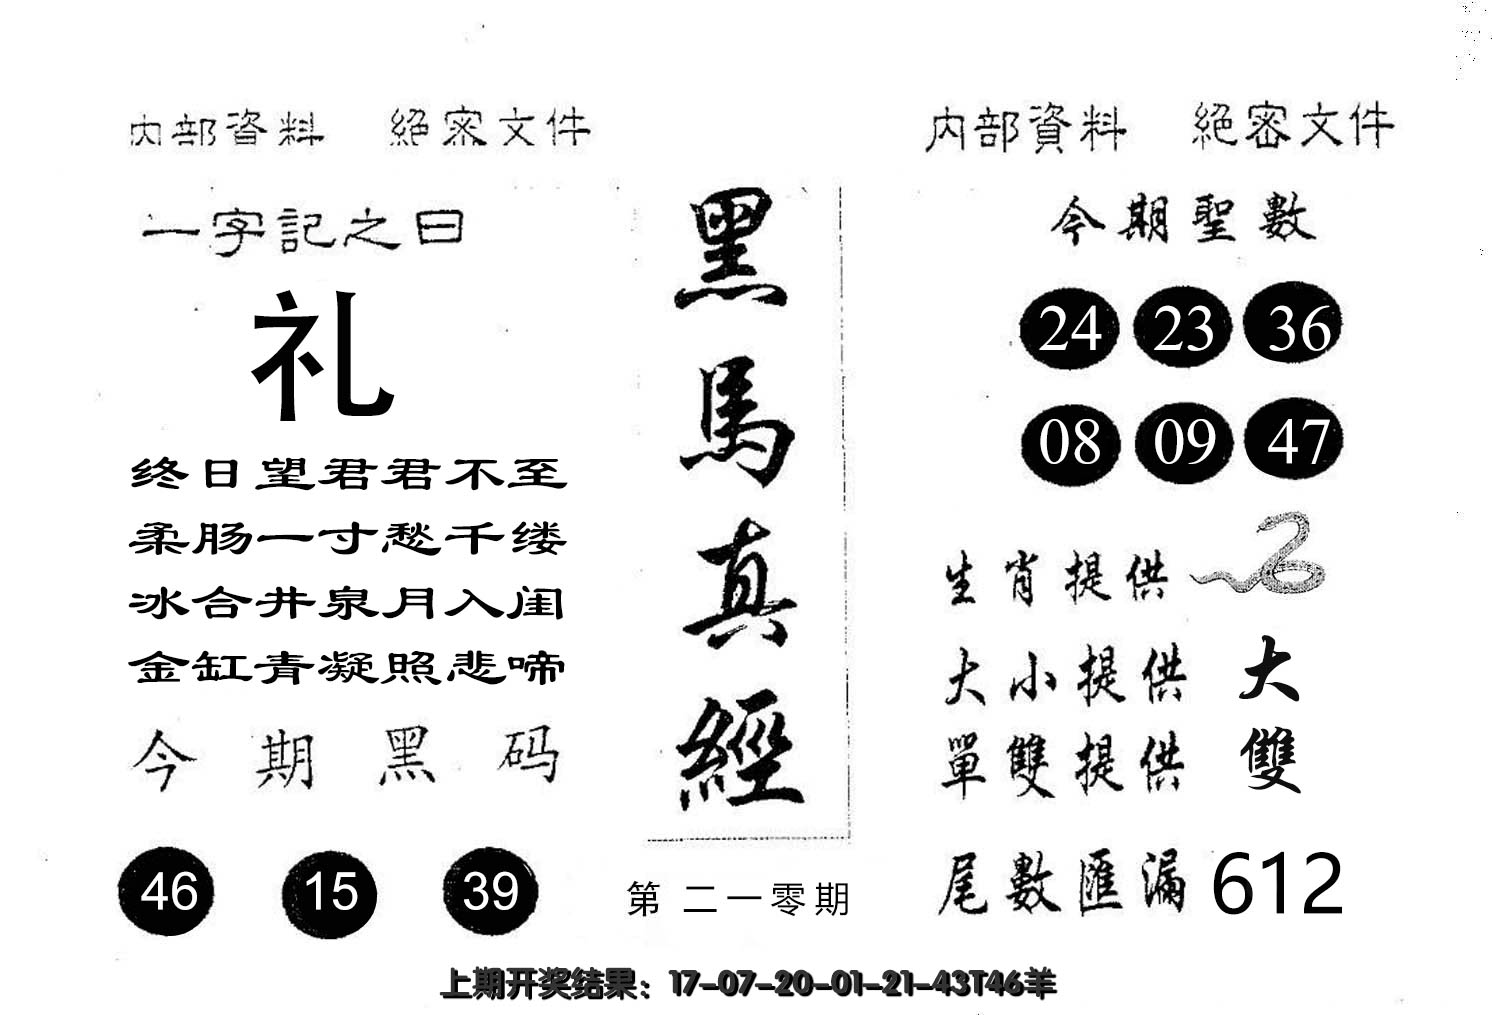 内部資料 絕密文件
一字記之曰
礼
终日望君君不至
柔肠一寸愁千缕
冰合井泉月入闺
金缸青凝照悲啼
今期黑码
46 15 39
黑馬真經
第 二一零期
内部資料 絕密文件
今期聖數
24 23 36
08 09 47
生肖提供
大小提供 大
單雙提供 雙
尾數匯漏 612
上期开奖结果：17-07-20-01-21-43T46羊